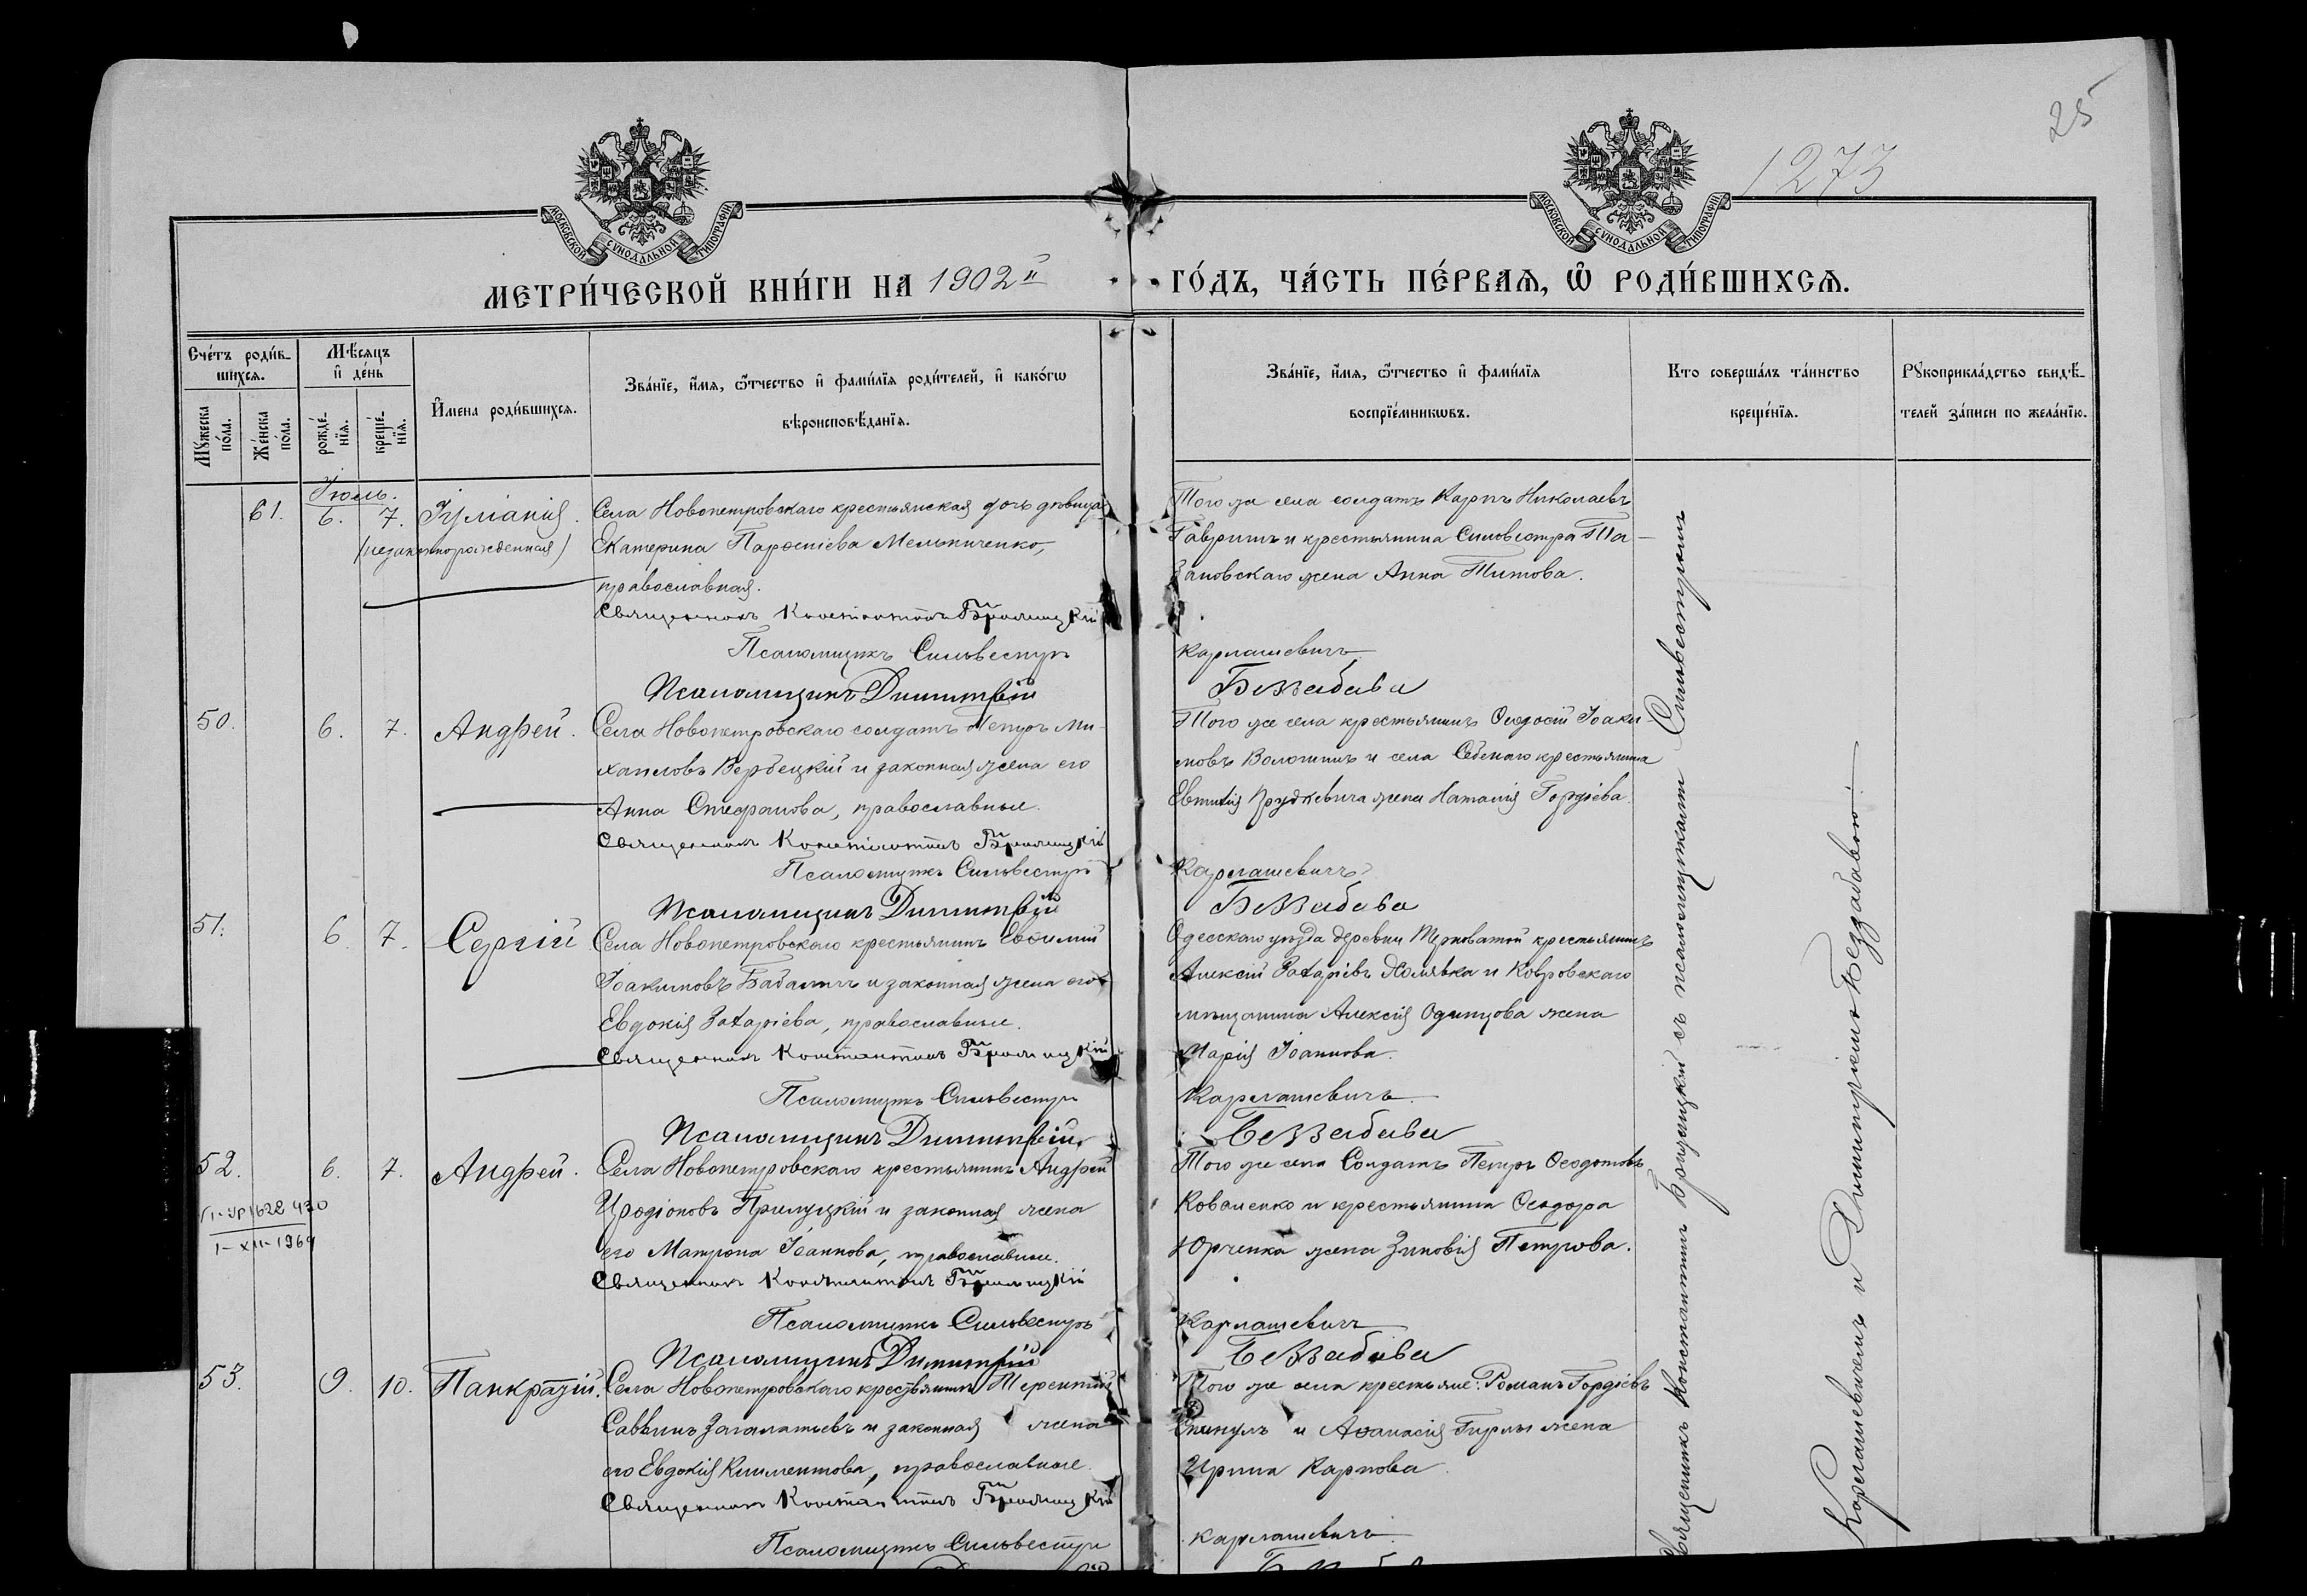 25
1273
МОСКОВСКОЙ СУНОДАЛЬНОЙ ТИПОГРАФІИ
МОСКОВСКОЙ СУНОДАЛЬНОЙ ТИПОГРАФІИ
МЕТРИ́ЧЕСКОЙ КНИ́ГИ НА 1902й ГО́ДЪ, ЧА́СТЬ ПЕ́РВАЯ, Ѡ҆ РОДИ́ВШИХСЯ.
Сче́тъ роди́в-
шихся.
Мѣ́сяцъ
и҆ де́нь
Мꙋ́жеска
по́ла.
Же́нска
по́ла.
рожде́-
нїя.
креще́-
нїя.
И҆мена роди́вшихся.
Зва́нїе, и҆́мя, ѻ҆́тчество и҆ фами́лїя роди́телей, и҆ како́гѡ
вѣроисповѣ́данїя.
Зва́нїе, и҆́мя, ѻ҆́тчество и҆ фами́лїя
воспрїе́мникѡвъ.
Кто соверша́лъ та́инство
креще́нїя.
Рꙋкоприкла́дство свидѣ́-
телей за́писи по жела́нїю.
Іюль.
61. 6. 7. Іуліанія.
(незаконнорожденная)
Села Новопетровскаго крестьянская дочь дѣвица
Екатерина Парѳеніева Мельниченко,
православная.
Священникъ Константинъ Бѣлицкій
Псаломщикъ Сильвестръ
Псаломщикъ Димитрій
Того же села солдатъ Карпъ Николаевъ
Гавришъ и крестьянина Сильвестра
жена Анна Титова.
Карлашевичъ
Беззабава
50. 6. 7. Андрей.
Села Новопетровскаго солдатъ Петръ Ми-
хаиловъ Вербецкій и законная жена его
Анна Стефанова, православные.
Священникъ Константинъ
Псаломщикъ Сильвестръ
Псаломщикъ Димитрій
Того же села крестьянинъ Ѳеодосій Іоаки-
мовъ Волошинъ и села крестьянина
Евтихія жена Наталія Гордіева.
Карлашевичъ
Беззабава
51. 6. 7. Сергій
Села Новопетровскаго крестьянинъ Евѳимій
Іоакимовъ и законная жена его
Евдокія Захаріева, православные.
Священникъ Константинъ
Псаломщикъ Сильвестръ
Псаломщикъ Димитрій
Одесскаго уѣзда деревни Терноватой крестьянинъ
Алексій Захаріевъ Холявка и Ковровскаго
мѣщанина Алексія Одинцова жена
Марія Іоаннова.
Карлашевичъ
Беззабава
52. 6. 7. Андрей.
1-XII-1964
Села Новопетровскаго крестьянинъ Андрей
Иродіоновъ Прилуцкій и законная жена
его Матрона Іоаннова, православные.
Священникъ Константинъ
Псаломщикъ Сильвестръ
Псаломщикъ Димитрій
Того же села Солдатъ Петръ Ѳеодотовъ
Коваленко и крестьянина Ѳеодора
Юрченка жена Зиновія Петрова.
Карлашевичъ
Беззабава
53. 9. 10. Панкратій.
Села Новопетровскаго крестьянинъ Терентій
Саввинъ и законная жена
его Евдокія Климентова, православные.
Священникъ Константинъ
Псаломщикъ Сильвестръ
Того же села крестьяне: Романъ Гордіевъ
и Аѳанасія Гирлы жена
Ирина Карпова
Карлашевичъ
Священникъ Константинъ съ псаломщиками Сильвестромъ
Карлашевичемъ и Димитріемъ Беззабавою.